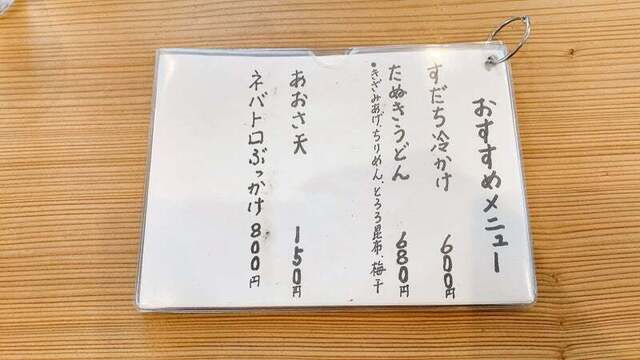 おすすめメニュー
すだち冷かけ 600円
たぬきうどん 680円
•きざみあげ、ちりめん、とろろ昆布、梅干
あおさ天 150円
ネバトロぶっかけ 800円